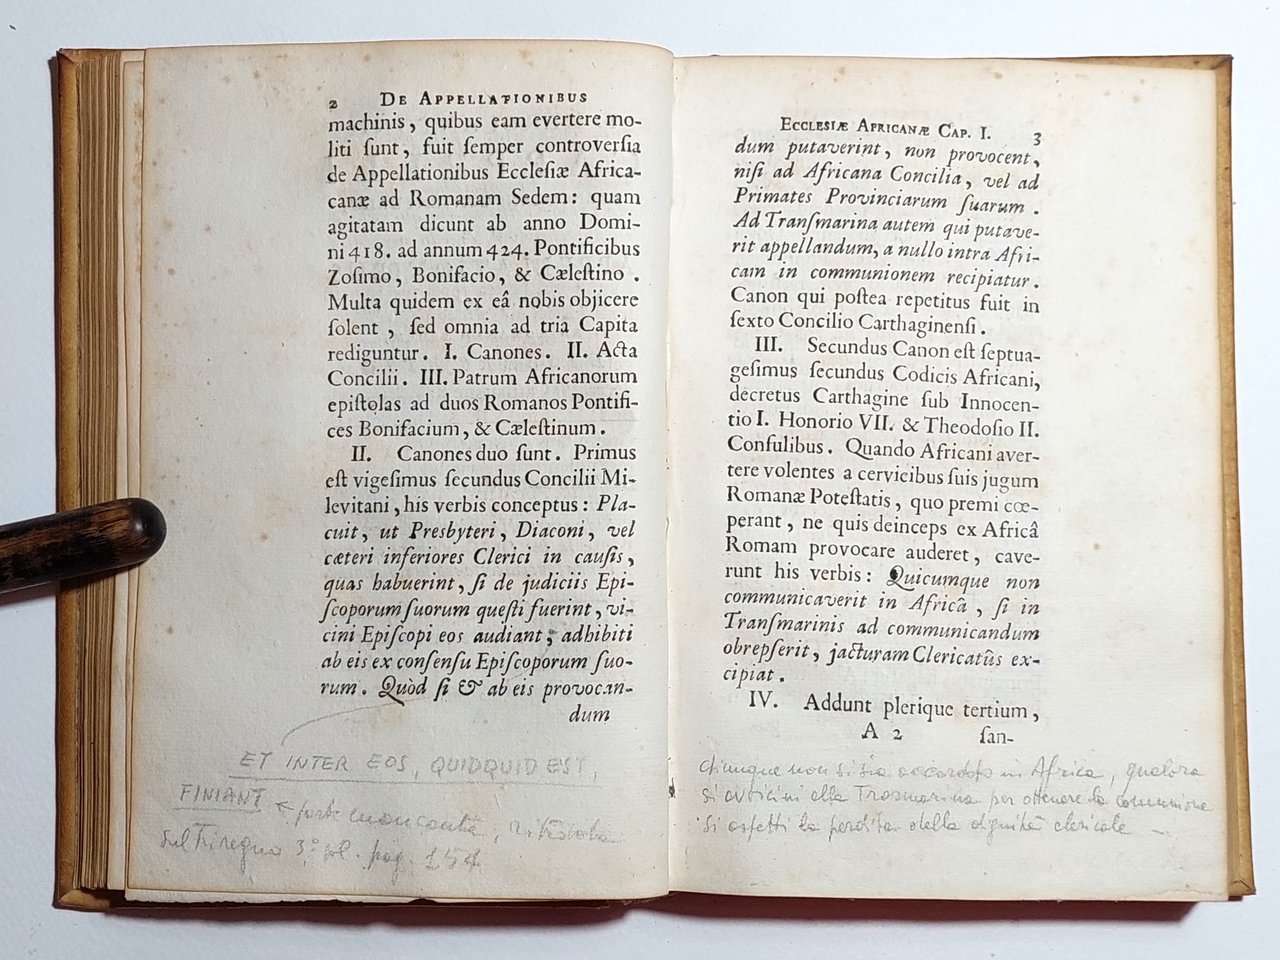 2 DE APPELLATIONIBUS
machinis, quibus eam evertere mo-
liti ſunt, fuit ſemper controverſia
de Appellationibus Eccleſiæ Africa-
canæ ad Romanam Sedem: quam
agitatam dicunt ab anno Domi-
ni 418. ad annum 424. Pontificibus
Zoſimo, Bonifacio, & Cæleſtino.
Multa quidem ex eâ nobis objicere
ſolent, ſed omnia ad tria Capita
rediguntur. I. Canones. II. Acta
Concilii. III. Patrum Africanorum
epiſtolas ad duos Romanos Pontifi-
ces Bonifacium, & Cæleſtinum.
II. Canones duo ſunt. Primus
eſt vigeſimus ſecundus Concilii Mi-
levitani, his verbis conceptus: Pla-
cuit, ut Presbyteri, Diaconi, vel
cæteri inferiores Clerici in cauſis,
quas habuerint, ſi de judiciis Epi-
ſcoporum ſuorum queſti fuerint, vi-
cini Epiſcopi eos audiant, adhibiti
ab eis ex conſenſu Epiſcoporum ſuo-
rum. Quòd ſi & ab eis provocan-
dum
ET INTER EOS, QUIDQUID EST,
FINIANT ← parte mancante,
sul Triregno 3° vol. pag. 154
ECCLESIÆ AFRICANÆ CAP. I. 3
dum putaverint, non provocent,
niſi ad Africana Concilia, vel ad
Primates Provinciarum ſuarum.
Ad Tranſmarina autem qui putave-
rit appellandum, a nullo intra Afri-
cam in communionem recipiatur.
Canon qui poſtea repetitus fuit in
ſexto Concilio Carthaginenſi.
III. Secundus Canon eſt ſeptua-
geſimus ſecundus Codicis Africani,
decretus Carthagine ſub Innocen-
tio I. Honorio VII. & Theodoſio II.
Conſulibus. Quando Africani aver-
tere volentes a cervicibus ſuis jugum
Romanæ Poteſtatis, quo premi cœ-
perant, ne quis deinceps ex Africâ
Romam provocare auderet, cave-
runt his verbis: Quicumque non
communicaverit in Africâ, ſi in
Tranſmarinis ad communicandum
obrepſerit, jacturam Clericatûs ex-
cipiat.
IV. Addunt plerique tertium,
A 2 ſan-
chiunque non si sia accordato in Africa, qualora
si avvicini alla Trasmarina per ottenere la comunione
si aspetti la perdita della dignità clericale